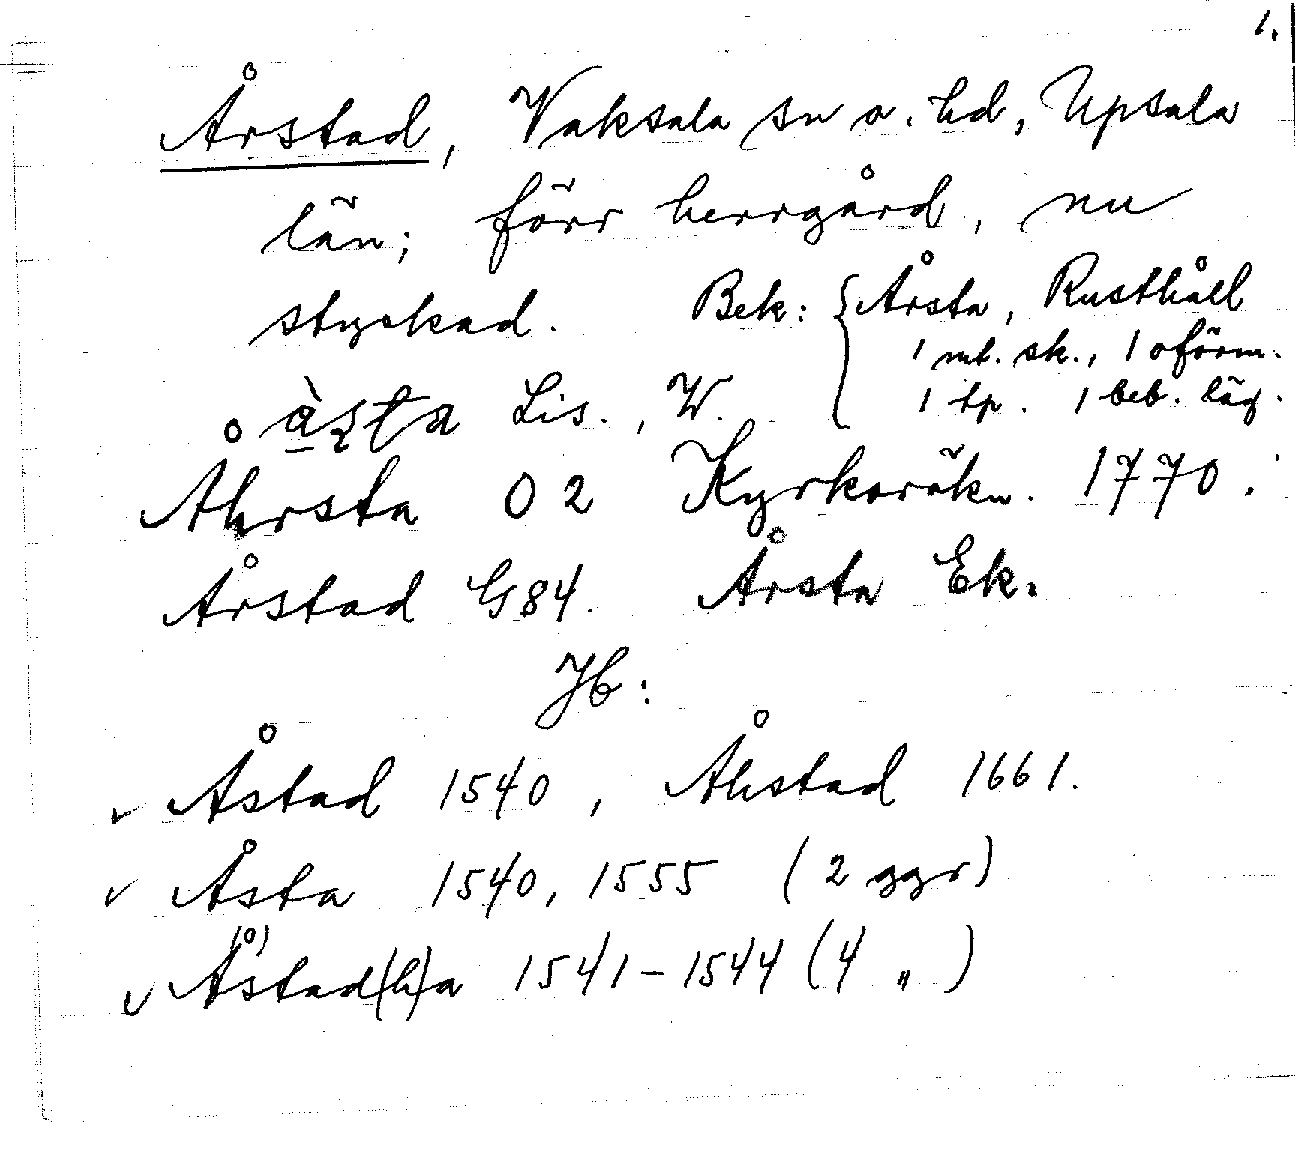 1.
Årstad, Vaksala sn o. hd, Upsala
län; förr herrgård, nu
styckad. Bek: { Årsta, Rusthåll
1 mt. sk., 1 oförm.
1 tp. 1 beb. läg.
o àsta Lis., W.
Åhrsta O 2 Kyrkoräkn. 1770.
Årstad G84. Årsta Ek.
Jb:
✓ Åstad 1540, Åhstad 1661.
✓ Åsta 1540, 1555 (2 ggr)
✓ Å(°)stad(h)a 1541-1544 (4 „ )